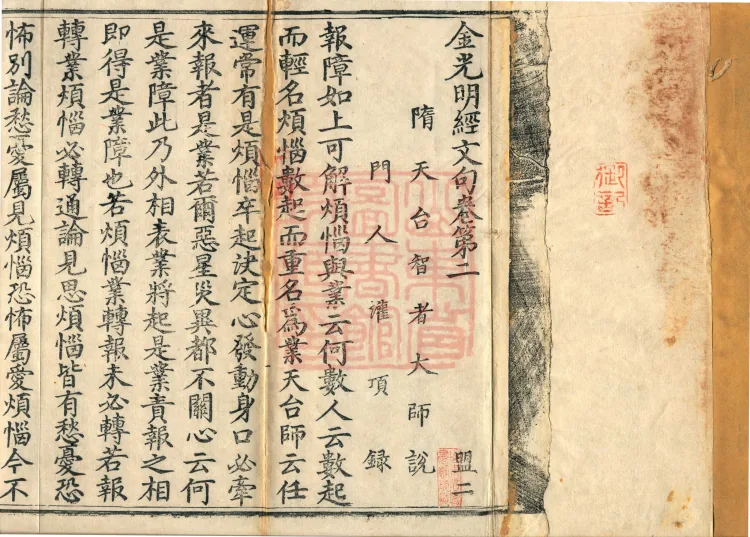 金光明經文句卷第二 盟二
隋天台智者大師說
門人灌頂錄
報障如上可解煩惱與業云何數人云數起
而輕名煩惱數起而重名爲業天台師云任
運常有是煩惱卒起決定心發動身口必牽
來報者是業若爾惡星災異都不關心云何
是業障此乃外相表業將起是業責報之相
即得是業障也若煩惱業轉報未必轉若報
轉業煩惱必轉通論見思煩惱皆有愁憂恐
怖別論愁憂屬見煩惱恐怖屬愛煩惱今不